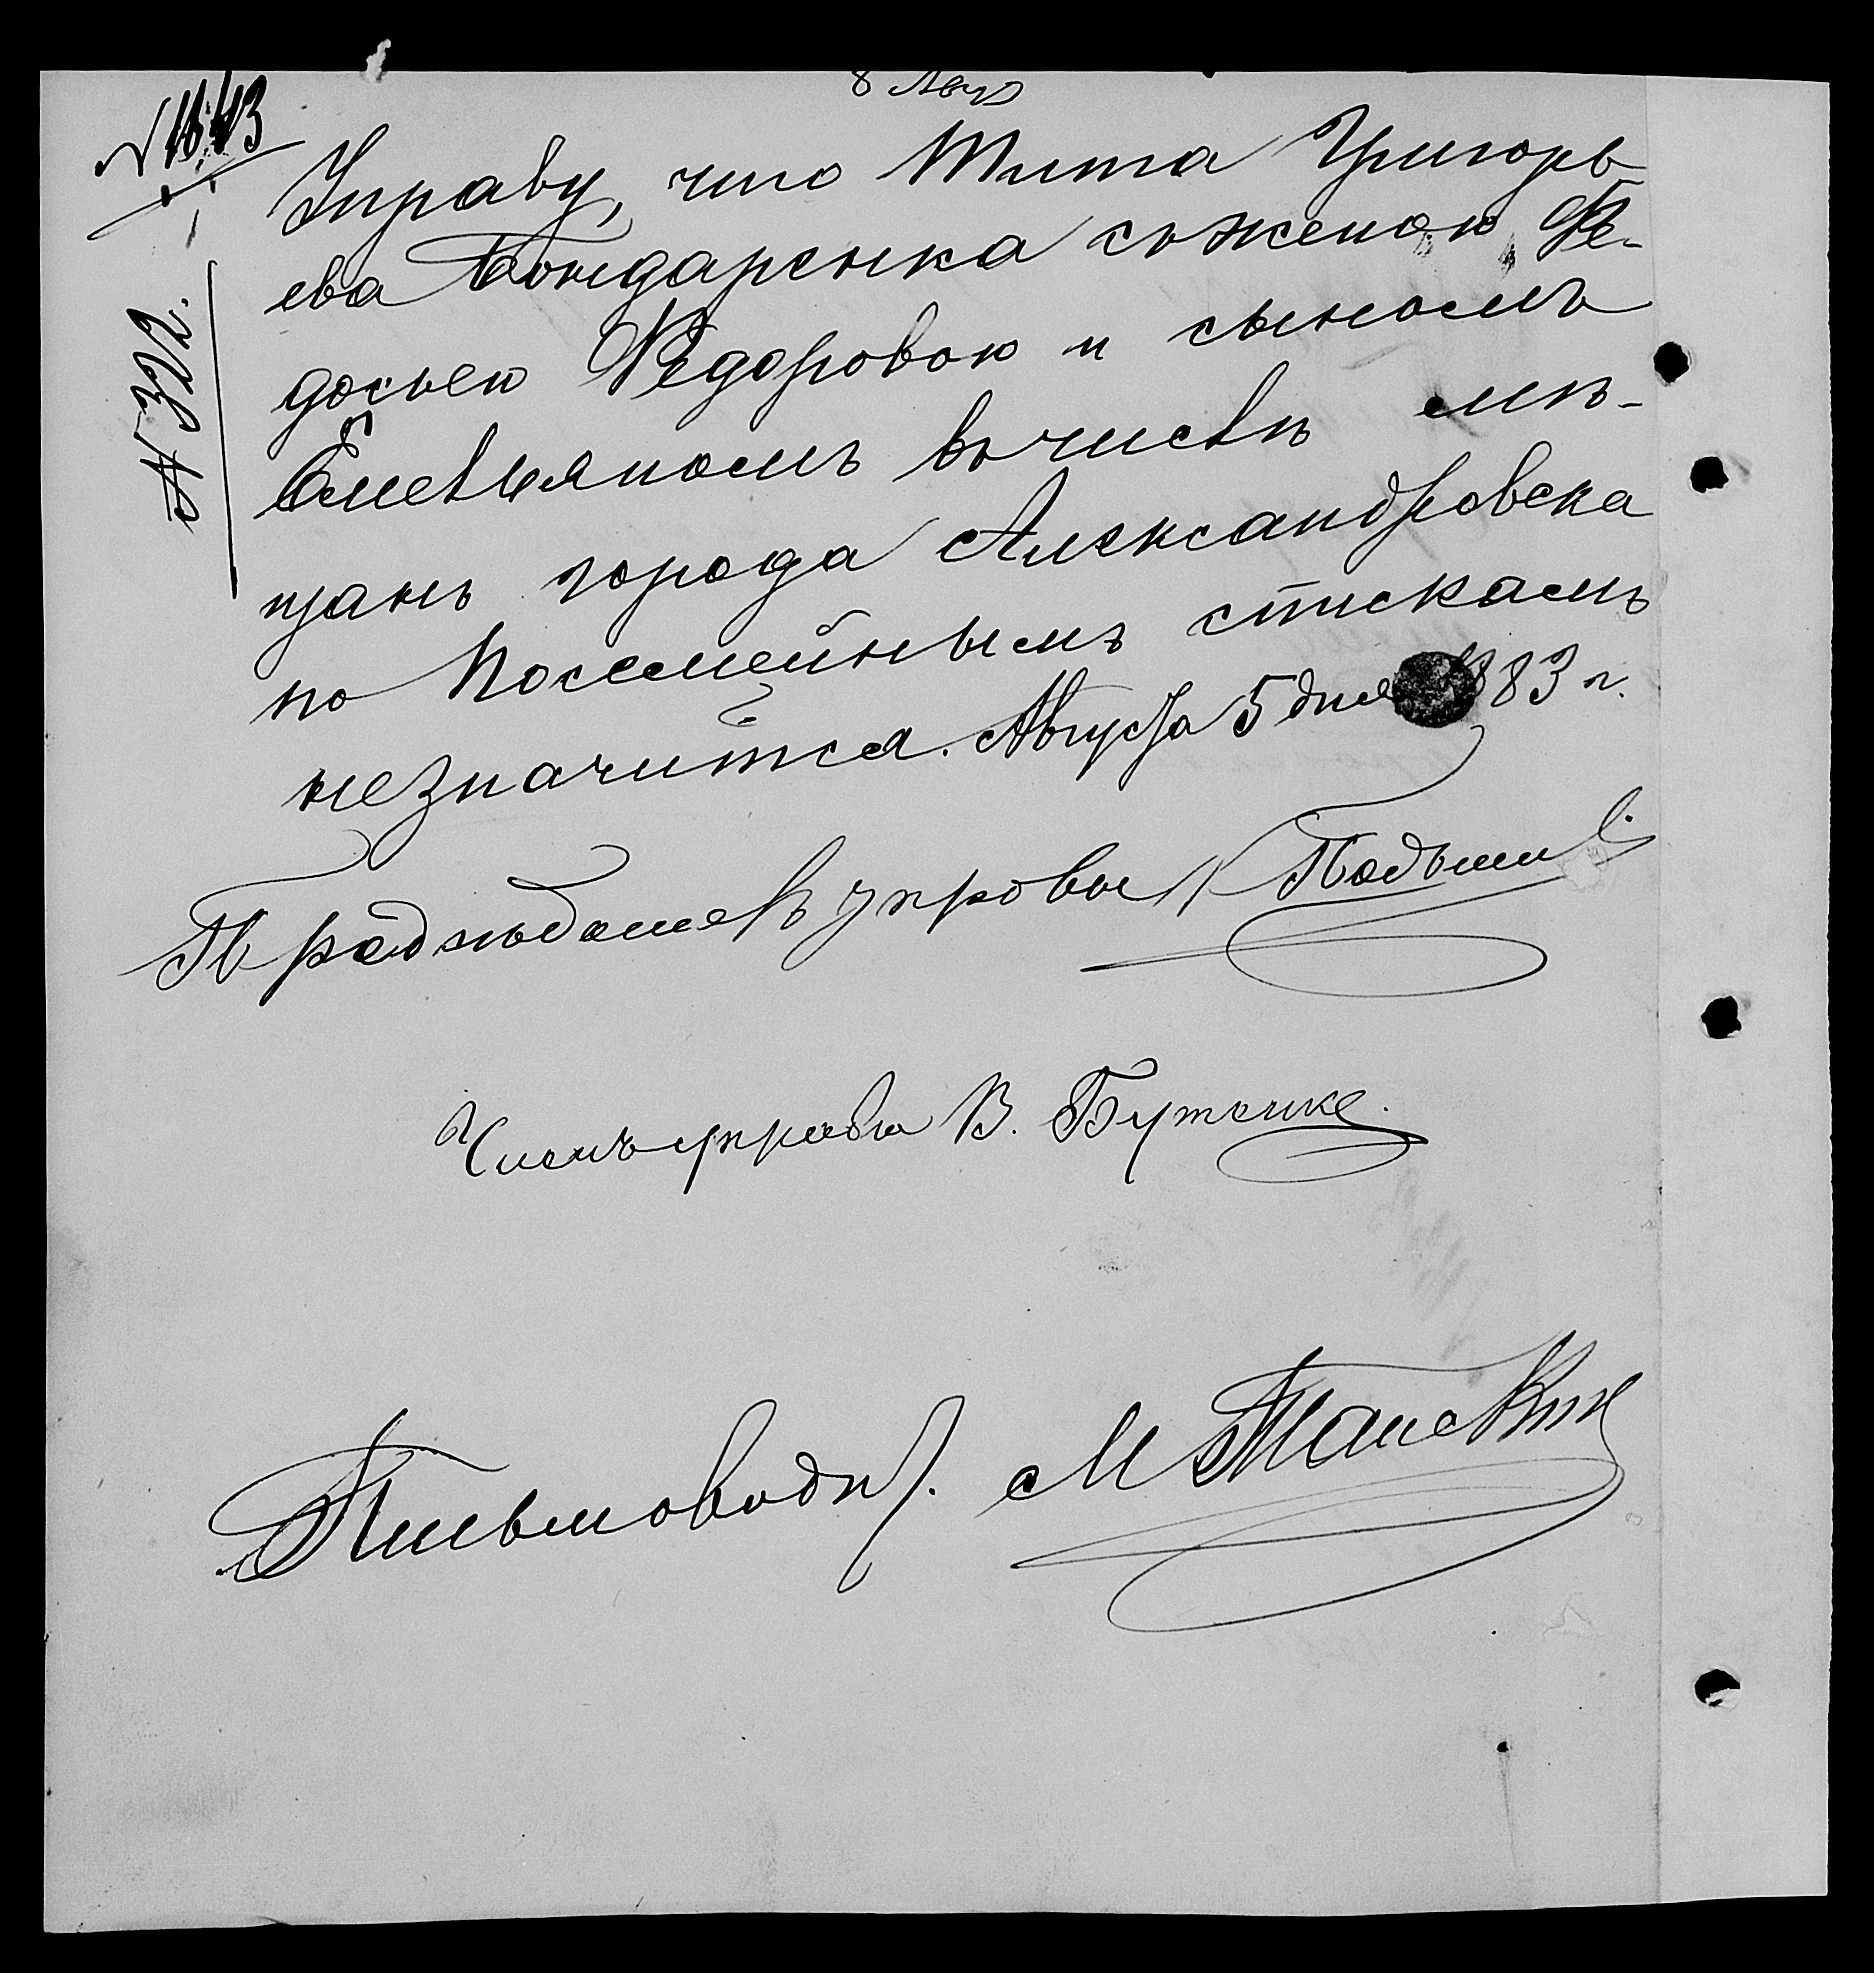 8 Авг
Управу, что Тита Григорь-
ева Бондаренка съ женою Фе-
досьею Федоровою и сыномъ
Емельяномъ въ числѣ мѣ-
щанъ города Александровска
по посемейнымъ спискамъ
незначится. Августа 5 дня 1883 г.
№ 322.
Предсѣдатель управы
Членъ управы В. Бутенко
Письмоводит. М